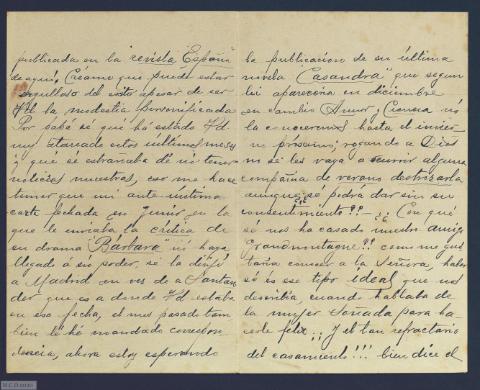 publicada en la revista España
de aquí. Créame que puede estar
orgulloso del éxito apesar de ser
Vd la modestia personificada
Por papá sé que há estado Vd
muy atareado estos últimos meses
y que se estrañaba de no tener
noticias nuestras, eso me hace
temer que mi ante-última
carta fechada en Junio en la
que le enviaba la crítica de
su drama Bárbara nó haya
llegado á su poder, se la dirijí
a Madrid en vez de a Santan
der que es a donde Vd estaba
en esa fecha, el mes pasado tam
bien le hé mandado correspon
dencia, ahora estoy esperando
la publicacion de su última
novela Casandra que segun
leí aparecería en diciembre
en cambio Amor y Ciencia nó
la conoceremos hasta el invier
no próximo; rogando a Dios
no se les vaya a ocurrir alguna
compañia de verano destrozarla
aunque ¿se podrá dar sin su
consentimiento?? — ¿¿ Con qué
só nos ha casado nuestro amigo
?? como me gus
taría conocer a la Señora, habrá
sido es ese tipo ideal que nos
describía, cuando hablaba de
la mujer soñada para ha
cerle feliz ¡¡ Y el tan refractario
del casamiento!!! bien dice el
M.C.D. 2020